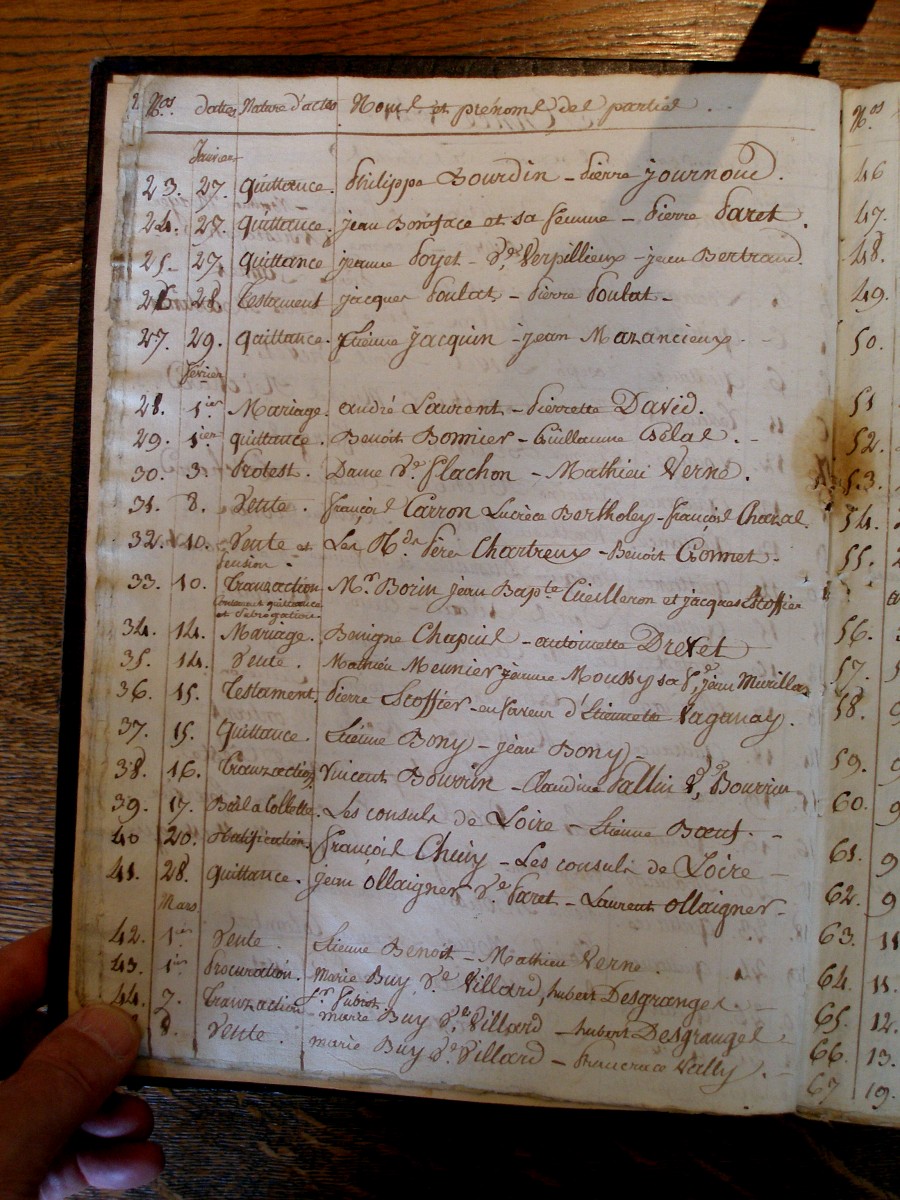 2. Nos dattes Nature d'actes Noms et prénoms des parties .
Janvier
23. 27. quittance. Philippe Bourdin - Pierre Journoud.
24. 27. quittance. jean Boniface et sa femme - Pierre Paret
25. 27. quittance jeanne Poyet - Ve. Verpillieux - jean Bertrand.
26 28. Testament jacques Poulat - Pierre Poulat -
27. 29. quittance. Etienne Jacquin - jean Mazancieux
février
28. 1ier Mariage. andré Laurent - Pierrette David.
29. 1ier quittance. Benoît Bonnier - Guillaume . -
30. 3. Protest. Dame Ve. flachon - Mathieu Verne.
31. 8. Vente. françois Carron Lucrèce Bertholey - françois Chazal.
32. 10. Vente et Les Rds Pères Chartreux - Benoit Gonnet -
Pension -
33. 10. Tranzaction Mr. Borin jean Bapte Cuilleron et jacques Escoffier
Contenant quittance
et Subrogation
34. 14. Mariage. Benigne Chapuis - antoinette Drevet
35. 14. Vente. Mathieu Meunier jeanne Moussy sa fe, jean Murillon
36. 15. Testament, Pierre Escoffier - en faveur d'Etiennette Vaganay.
37. 15. quittance. Etienne Bony - jean Bony
38. 16. Tranzaction Vincent Bourrin - Claudine Vallin Ve, Bourrin
39. 17. Bail a Collette. Les consuls de Loire - Etienne Bœuf. -
40 20. Ratification. françois Chuiy - Les consuls de Loire -
41. 28. quittance. jean Ollaigner Ve. Paret - Laurent Ollaigner -
Mars
42. 1ier Vente. Etienne Benoit - Mathieu Verne.
43. 1ier Procuration. marie Buy Ve Villard, hubert Desgranges -
44. 7. Tranzaction marie Buy Ve, Villard - hubert Desgranges -
8. Vente. marie Buy Ve Villard - Vally. -
Nos
46
47.
48.
49.
50.
51
52.
53.
54.
55.
56.
57.
58.
59.
60.
61. 9
62. 9
63. 11
64. 11.
65. 12.
66. 13.
67 19.